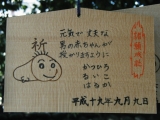 祈
元気が丈夫な
男の赤ちゃんが
授かりますように
かつひろ
るいこ
はるか
平成十九年九月九日